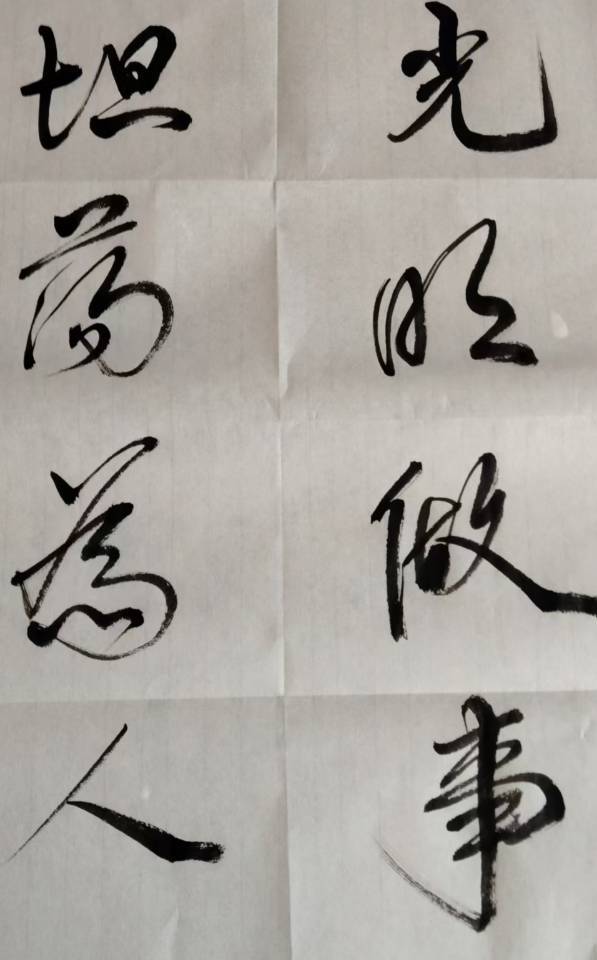 光明做事
坦荡為人